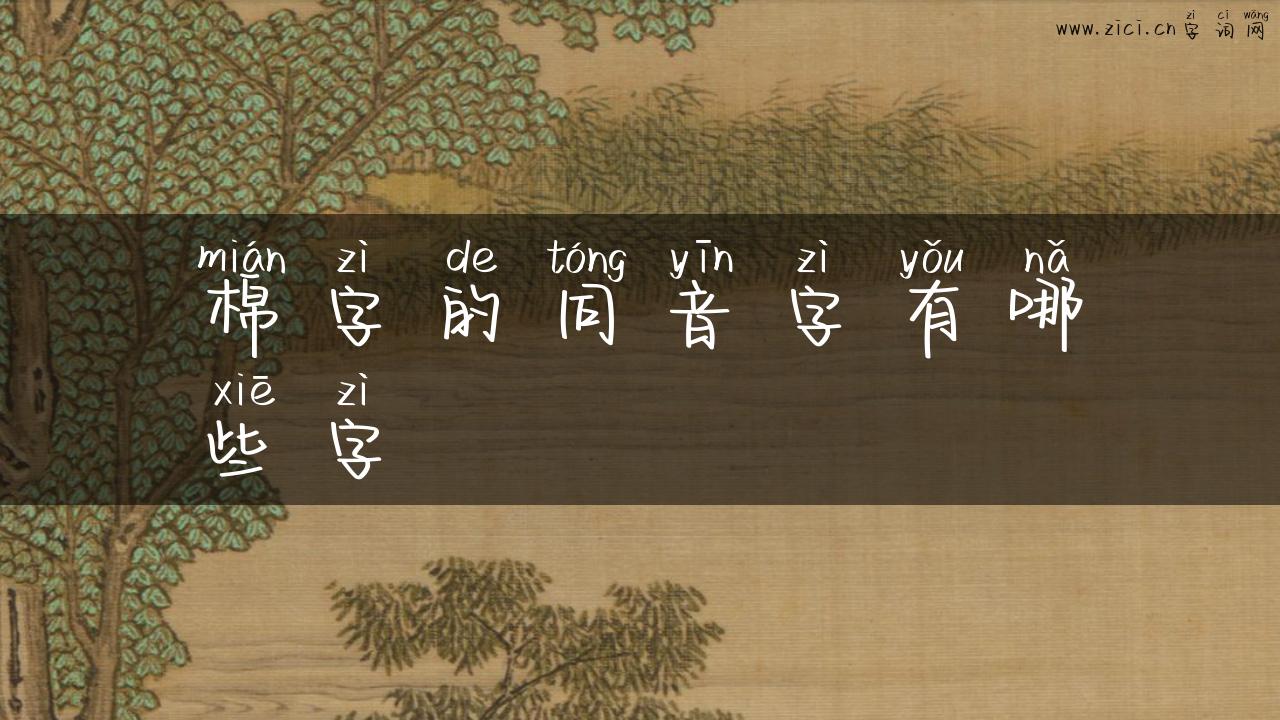 zì cí wǎng
www.zici.cn字词网
mián zì de tóng yīn zì yǒu nǎ
棉字的同音字有哪
xiē zì
些字